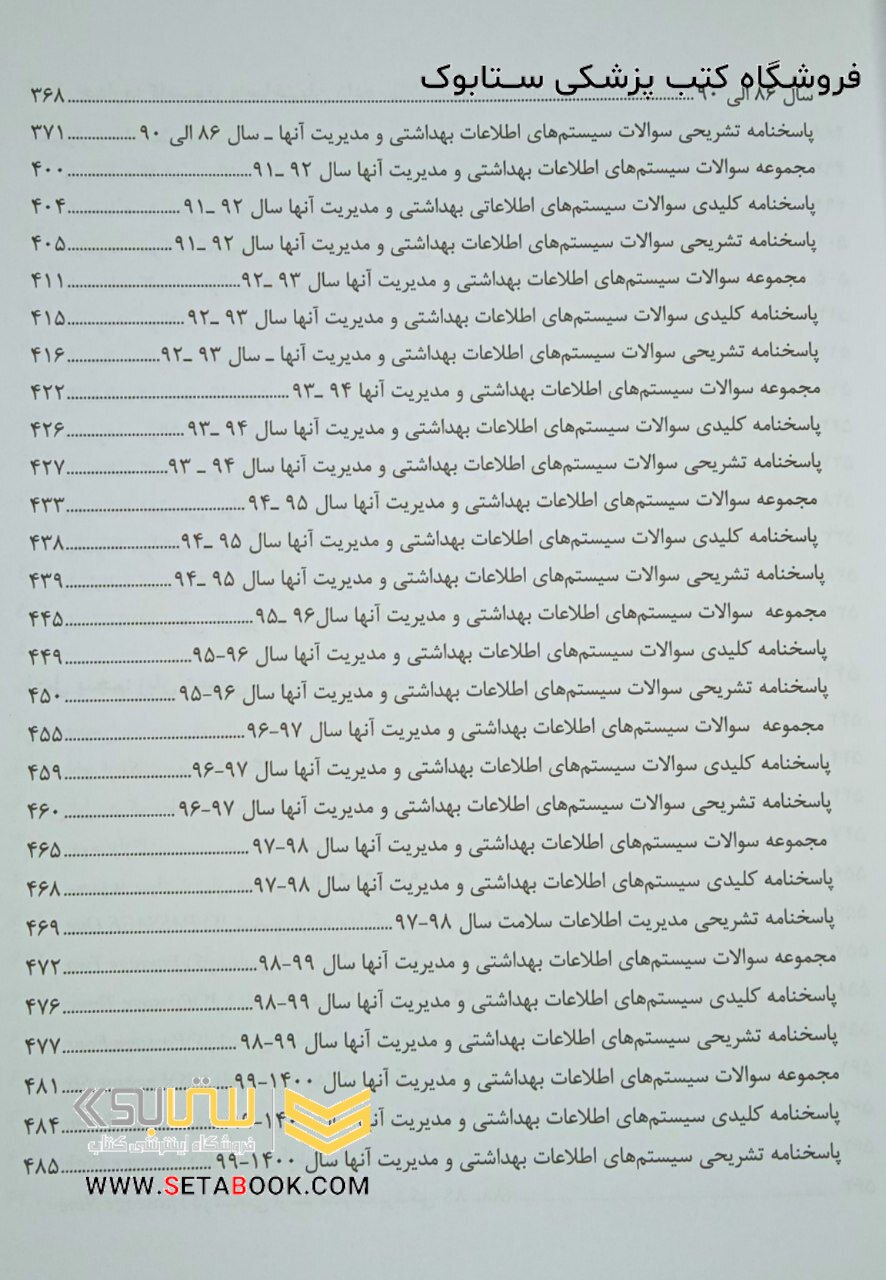 فروشگاه کتب پزشکی ستابوک
سال ۸۶ الی ۹۰ ۳۶۸
پاسخنامه تشریحی سوالات سیستم‌های اطلاعات بهداشتی و مدیریت آنها ـ سال ۸۶ الی ۹۰ ۳۷۱
مجموعه سوالات سیستم‌های اطلاعات بهداشتی و مدیریت آنها سال ۹۲ ـ۹۱ ۴۰۰
پاسخنامه کلیدی سوالات سیستم‌های اطلاعاتی بهداشتی و مدیریت آنها سال ۹۲ ـ۹۱ ۴۰۴
پاسخنامه تشریحی سوالات سیستم‌های اطلاعات بهداشتی و مدیریت آنها سال ۹۲ ـ۹۱ ۴۰۵
مجموعه سوالات سیستم‌های اطلاعات بهداشتی و مدیریت آنها سال ۹۳ ـ۹۲ ۴۱۱
پاسخنامه کلیدی سوالات سیستم‌های اطلاعات بهداشتی و مدیریت آنها سال ۹۳ ـ۹۲ ۴۱۵
پاسخنامه تشریحی سوالات سیستم‌های اطلاعات بهداشتی و مدیریت آنها ـ سال ۹۳ ـ۹۲ ۴۱۶
مجموعه سوالات سیستم‌های اطلاعات بهداشتی و مدیریت آنها ۹۴ ـ۹۳ ۴۲۲
پاسخنامه کلیدی سوالات سیستم‌های اطلاعات بهداشتی و مدیریت آنها سال ۹۴ ـ۹۳ ۴۲۶
پاسخنامه تشریحی سوالات سیستم‌های اطلاعات بهداشتی و مدیریت آنها سال ۹۴ ـ ۹۳ ۴۲۷
مجموعه سوالات سیستم‌های اطلاعات بهداشتی و مدیریت آنها سال ۹۵ ـ۹۴ ۴۳۳
پاسخنامه کلیدی سوالات سیستم‌های اطلاعات بهداشتی و مدیریت آنها سال ۹۵ ـ۹۴ ۴۳۸
پاسخنامه تشریحی سوالات سیستم‌های اطلاعات بهداشتی و مدیریت آنها سال ۹۵ ـ۹۴ ۴۳۹
مجموعه سوالات سیستم‌های اطلاعات بهداشتی و مدیریت آنها سال۹۶ ـ۹۵ ۴۴۵
پاسخنامه کلیدی سوالات سیستم‌های اطلاعات بهداشتی و مدیریت آنها سال ۹۶-۹۵ ۴۴۹
پاسخنامه تشریحی سوالات سیستم‌های اطلاعات بهداشتی و مدیریت آنها سال ۹۶-۹۵ ۴۵۰
مجموعه سوالات سیستم‌های اطلاعات بهداشتی و مدیریت آنها سال ۹۷-۹۶ ۴۵۵
پاسخنامه کلیدی سوالات سیستم‌های اطلاعات بهداشتی و مدیریت آنها سال ۹۷-۹۶ ۴۵۹
پاسخنامه تشریحی سوالات سیستم‌های اطلاعات بهداشتی و مدیریت آنها سال ۹۷-۹۶ ۴۶۰
مجموعه سوالات سیستم‌های اطلاعات بهداشتی و مدیریت آنها سال ۹۸-۹۷ ۴۶۵
پاسخنامه کلیدی سیستم‌های اطلاعات بهداشتی و مدیریت آنها سال ۹۸-۹۷ ۴۶۸
پاسخنامه تشریحی مدیریت اطلاعات سلامت سال ۹۸-۹۷ ۴۶۹
مجموعه سوالات سیستم‌های اطلاعات بهداشتی و مدیریت آنها سال ۹۹-۹۸ ۴۷۲
پاسخنامه کلیدی سیستم‌های اطلاعات بهداشتی و مدیریت آنها سال ۹۹-۹۸ ۴۷۶
پاسخنامه تشریحی سیستم‌های اطلاعات بهداشتی و مدیریت آنها سال ۹۹-۹۸ ۴۷۷
مجموعه سوالات سیستم‌های اطلاعات بهداشتی و مدیریت آنها سال ۱۴۰۰-۹۹ ۴۸۱
پاسخنامه کلیدی سیستم‌های اطلاعات بهداشتی و مدیریت آنها ۴۸۴
پاسخنامه تشریحی سیستم‌های اطلاعات بهداشتی و مدیریت آنها سال ۱۴۰۰-۹۹ ۴۸۵
ستابوک
فروشگاه اینترنتی کتاب
WWW.SETABOOK.COM